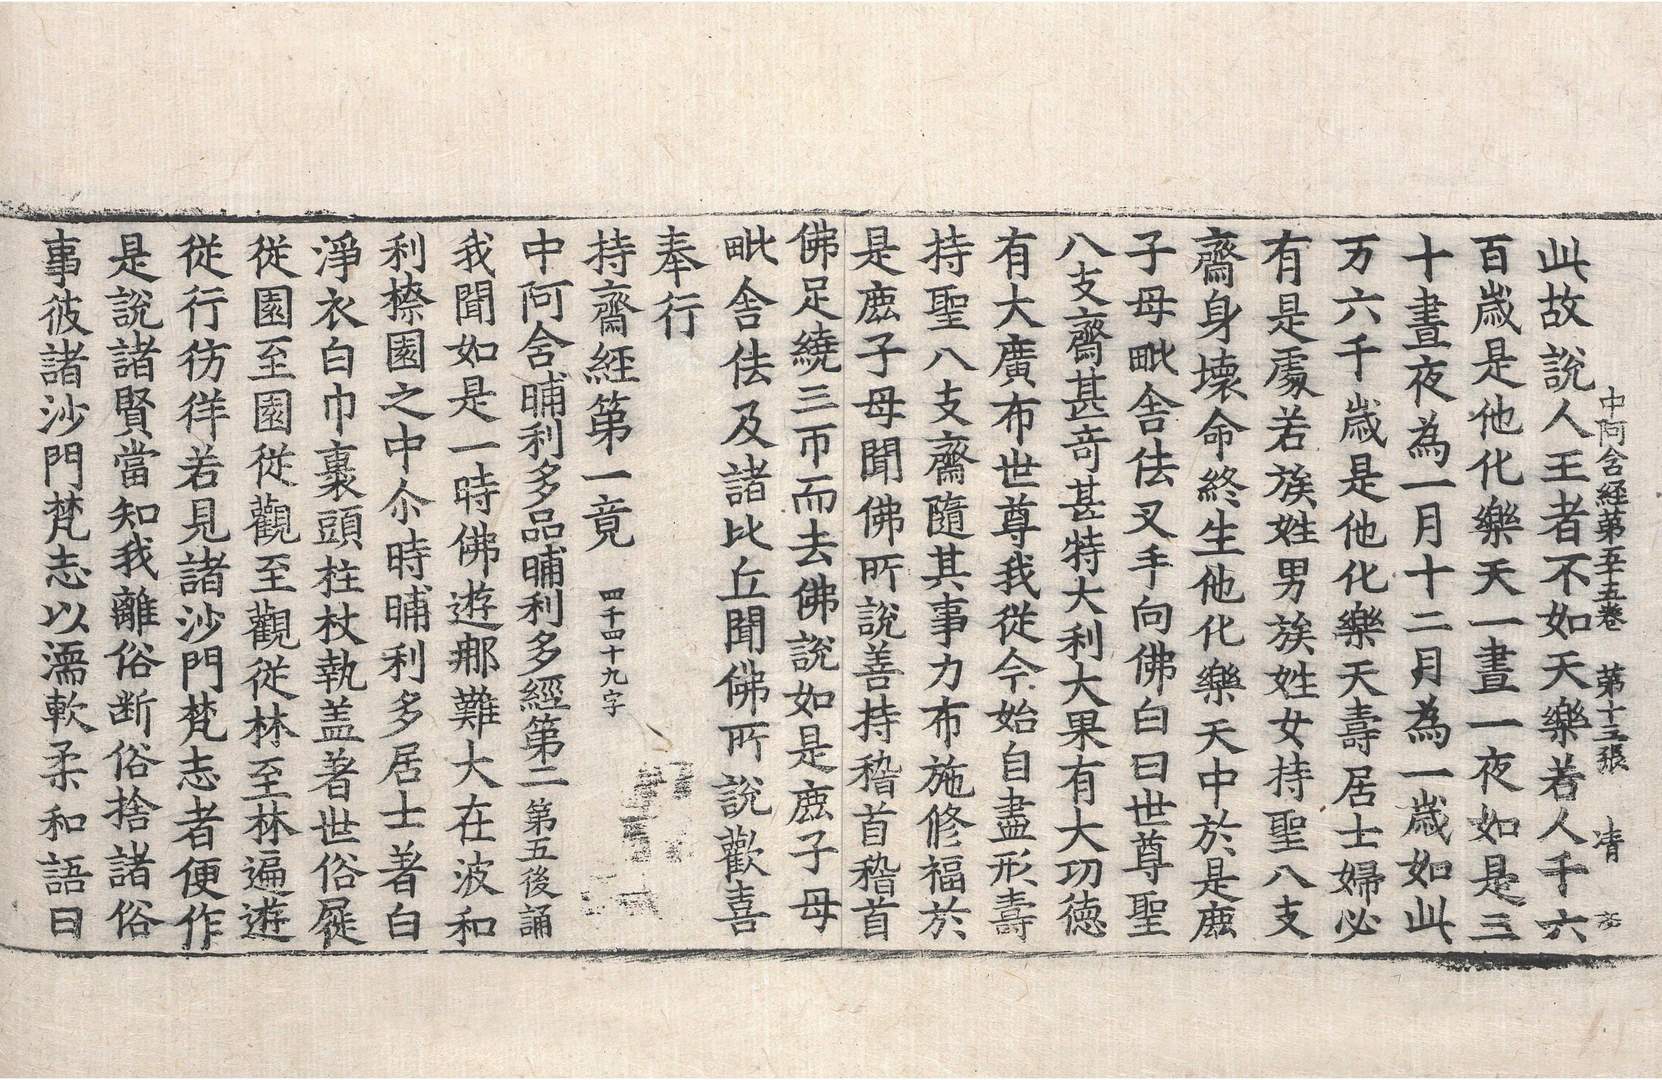 中阿含經第五十五卷 第十三張 凊
此故說人王者不如天樂若人千六
百歲是他化樂天一晝一夜如是三
十晝夜為一月十二月為一歲如此
万六千歲是他化樂天壽居士婦必
有是處若族姓男族姓女持聖八支
齋身壞命終生他化樂天中於是鹿
子母毗舍佉叉手向佛白曰世尊聖
八支齋甚奇甚特大利大果有大功德
有大廣布世尊我從今始自盡形壽
持聖八支齋隨其事力布施修福於
是鹿子母聞佛所說善持稽首稽首
佛足繞三帀而去佛說如是鹿子母
毗舍佉及諸比丘聞佛所說歡喜
奉行
持齋經第一竟 四千四十九字
中阿含晡利多品晡利多經第二 第五後誦
我聞如是一時佛遊那難大在波和
利㮈園之中尒時晡利多居士著白
淨衣白巾裹頭柱杖執盖著世俗屣
從園至園從觀至觀從林至林遍遊
從行彷徉若見諸沙門梵志者便作
是說諸賢當知我離俗断俗捨諸俗
事彼諸沙門梵志以濡軟柔和語曰